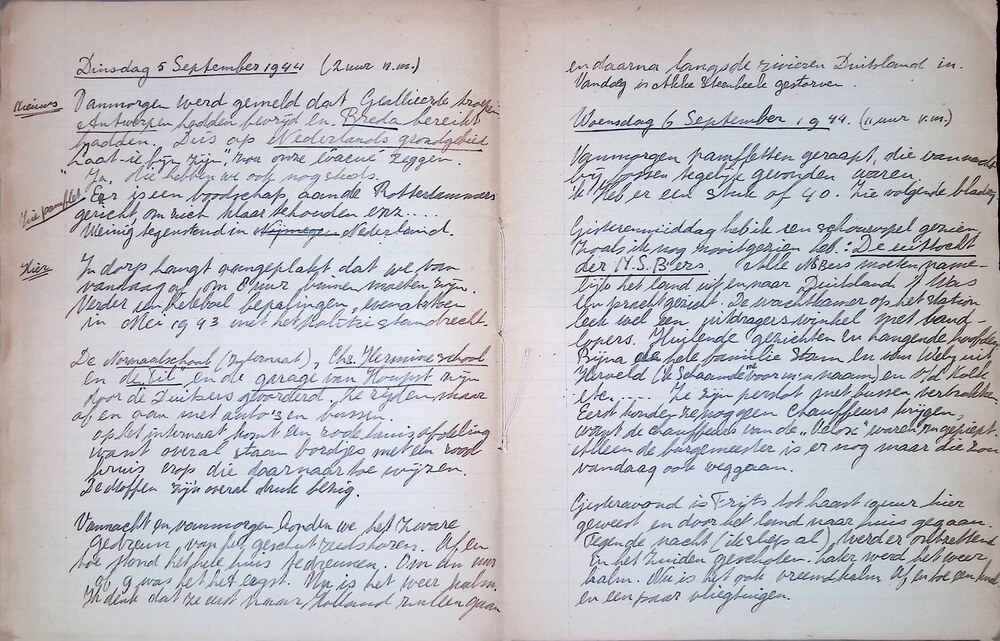 Dinsdag 5 September 1944 (2 uur n.m.)
Nieuws
Vanmorgen werd gemeld dat Geallieerde troepen
Antwerpen hadden bevrijd en Breda bereikt
hadden. Dus op Nederlands grondgebied
Laat-ie fijn zijn" zou onze evacué zeggen.
"Ja, die hebben we ook nog steeds.
Zie pamflet
Er is een boodschap aan de Rotterdammers
gericht, om zich klaar te houden enz....
Weinig tegenstand in Nijmegen Nederland.
Hier
In dorp hangt aangeplakt, dat we van
vandaag af, om 8 uur binnen moeten zijn.
Verder een heleboel bepalingen, evenals toen
in Mei 1943 met het politiestandrecht
De Normaalschool (Internaat), Chr. Hermineschool
en de Til, en de garage van zijn
door de Duitsers gevorderd. Ze rijden maar
af en aan met auto's en bussen
op het internaat komt een rode kruis afdeling
want overal staan bordjes met een rood
kruis erop die daar naar toe wijzen.
De Moffen zijn overal druk bezig.
Vannacht en vanmorgen konden we het zware
gedreun van geschut reeds horen. Af en
toe stond het hele huis te dreunen. Om een uur
of 9 was het het ergst. Nu is het weer kalm.
Ik denk dat ze eerst naar Holland zullen gaan
en daarna langs de rivieren Duitsland in.
Vandaag is gestorven.
Woensdag 6 September 1944. (11 uur v.m.)
Vanmorgen pamfletten geraapt, die vannacht
bij tegelijk gevonden waren.
Ik heb er een stuk of 40. Zie volgende bladzij
Gisterenmiddag heb ik een schouwspel gezien,
zoals ik nog nooit gezien heb: De uittocht
der N.S.B'ers Alle NSBers moeten name-
lijk het land uit en naar Duitsland 't Was
een prachtgezicht. De wachtkamer op het station
leek wel een uitdragerswinkel met land-
lopers. Huilende gezichten en hangende hoofden
Bijna de hele familie Stam en van uit
Herveld (ik schaamde me voor m'n naam) en v/d Kolk
etc..... Ze zijn per slot met bussen vertrokken.
Eerst konden ze nog geen chauffeurs krijgen,
want de chauffeurs van de "Velox" waren 'm gepiept
Alleen de burgemeester is er nog maar die zou
vandaag ook weggaan.
Gisteravond is Frits tot haast 9 uur hier
geweest en door het land naar huis gegaan.
Tegen de nacht (ik sliep al), werd er ontzettend
in het Zuiden geschoten. Later werd het weer
kalm. Nu is het ook vreemd kalm Af en toe een
en een paar vliegtuigen.